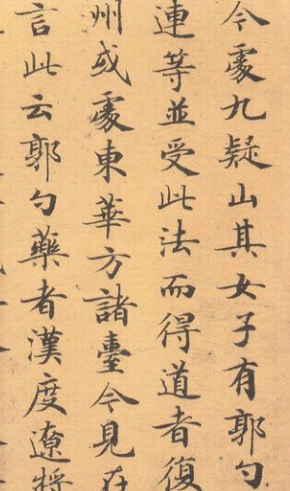 今處九疑山其女子有郭勺
連等並受此法而得道者復
州或處東華方諸臺今見在
言此云郭勺藥者漢度遼將